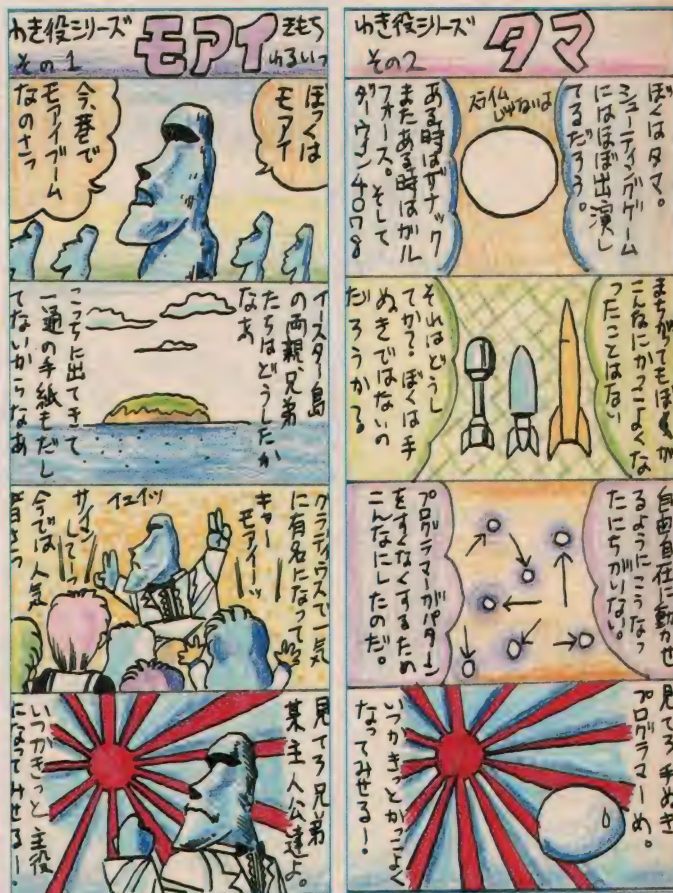 わき役シリーズ
その1
モアイ
きもち
わるいっ
ぼっくは
モアイ
今、巷で
モアイブーム
なのさっ
イースター島
の両親、兄弟
たちはどうしたか
なあ
こっちに出てきて
一通の手紙もだし
てないからなあ
グラディウスで一気
に有名になって
キャー
モアイーッ
イエイッ
サイン
してーっ
今では人気
者さっ
見てろ兄弟
某主人公達よ。
いつかきっと主役
になってみせるー!
わき役シリーズ
その2
タマ
ぼくはタマ。
シューティングゲーム
にはほぼ出演し
てるだろう。
スライム
じゃないよ
ある時はザナック
またある時はガル
フォース。そして
ダーウィン4078
まちがってもぼくが
こんなにかっこよくな
ったことはない
それはどうし
てか?ぼくは手
ぬきではないの
だろうか?
自由自在に動かせ
るようにこうなっ
たにちがいない。
プログラマーがパターン
をすくなくするため
こんなにしたのだ。
見てろ手ぬき
プログラマーめ。
いつかきっとかっこよく
なってみせるー!